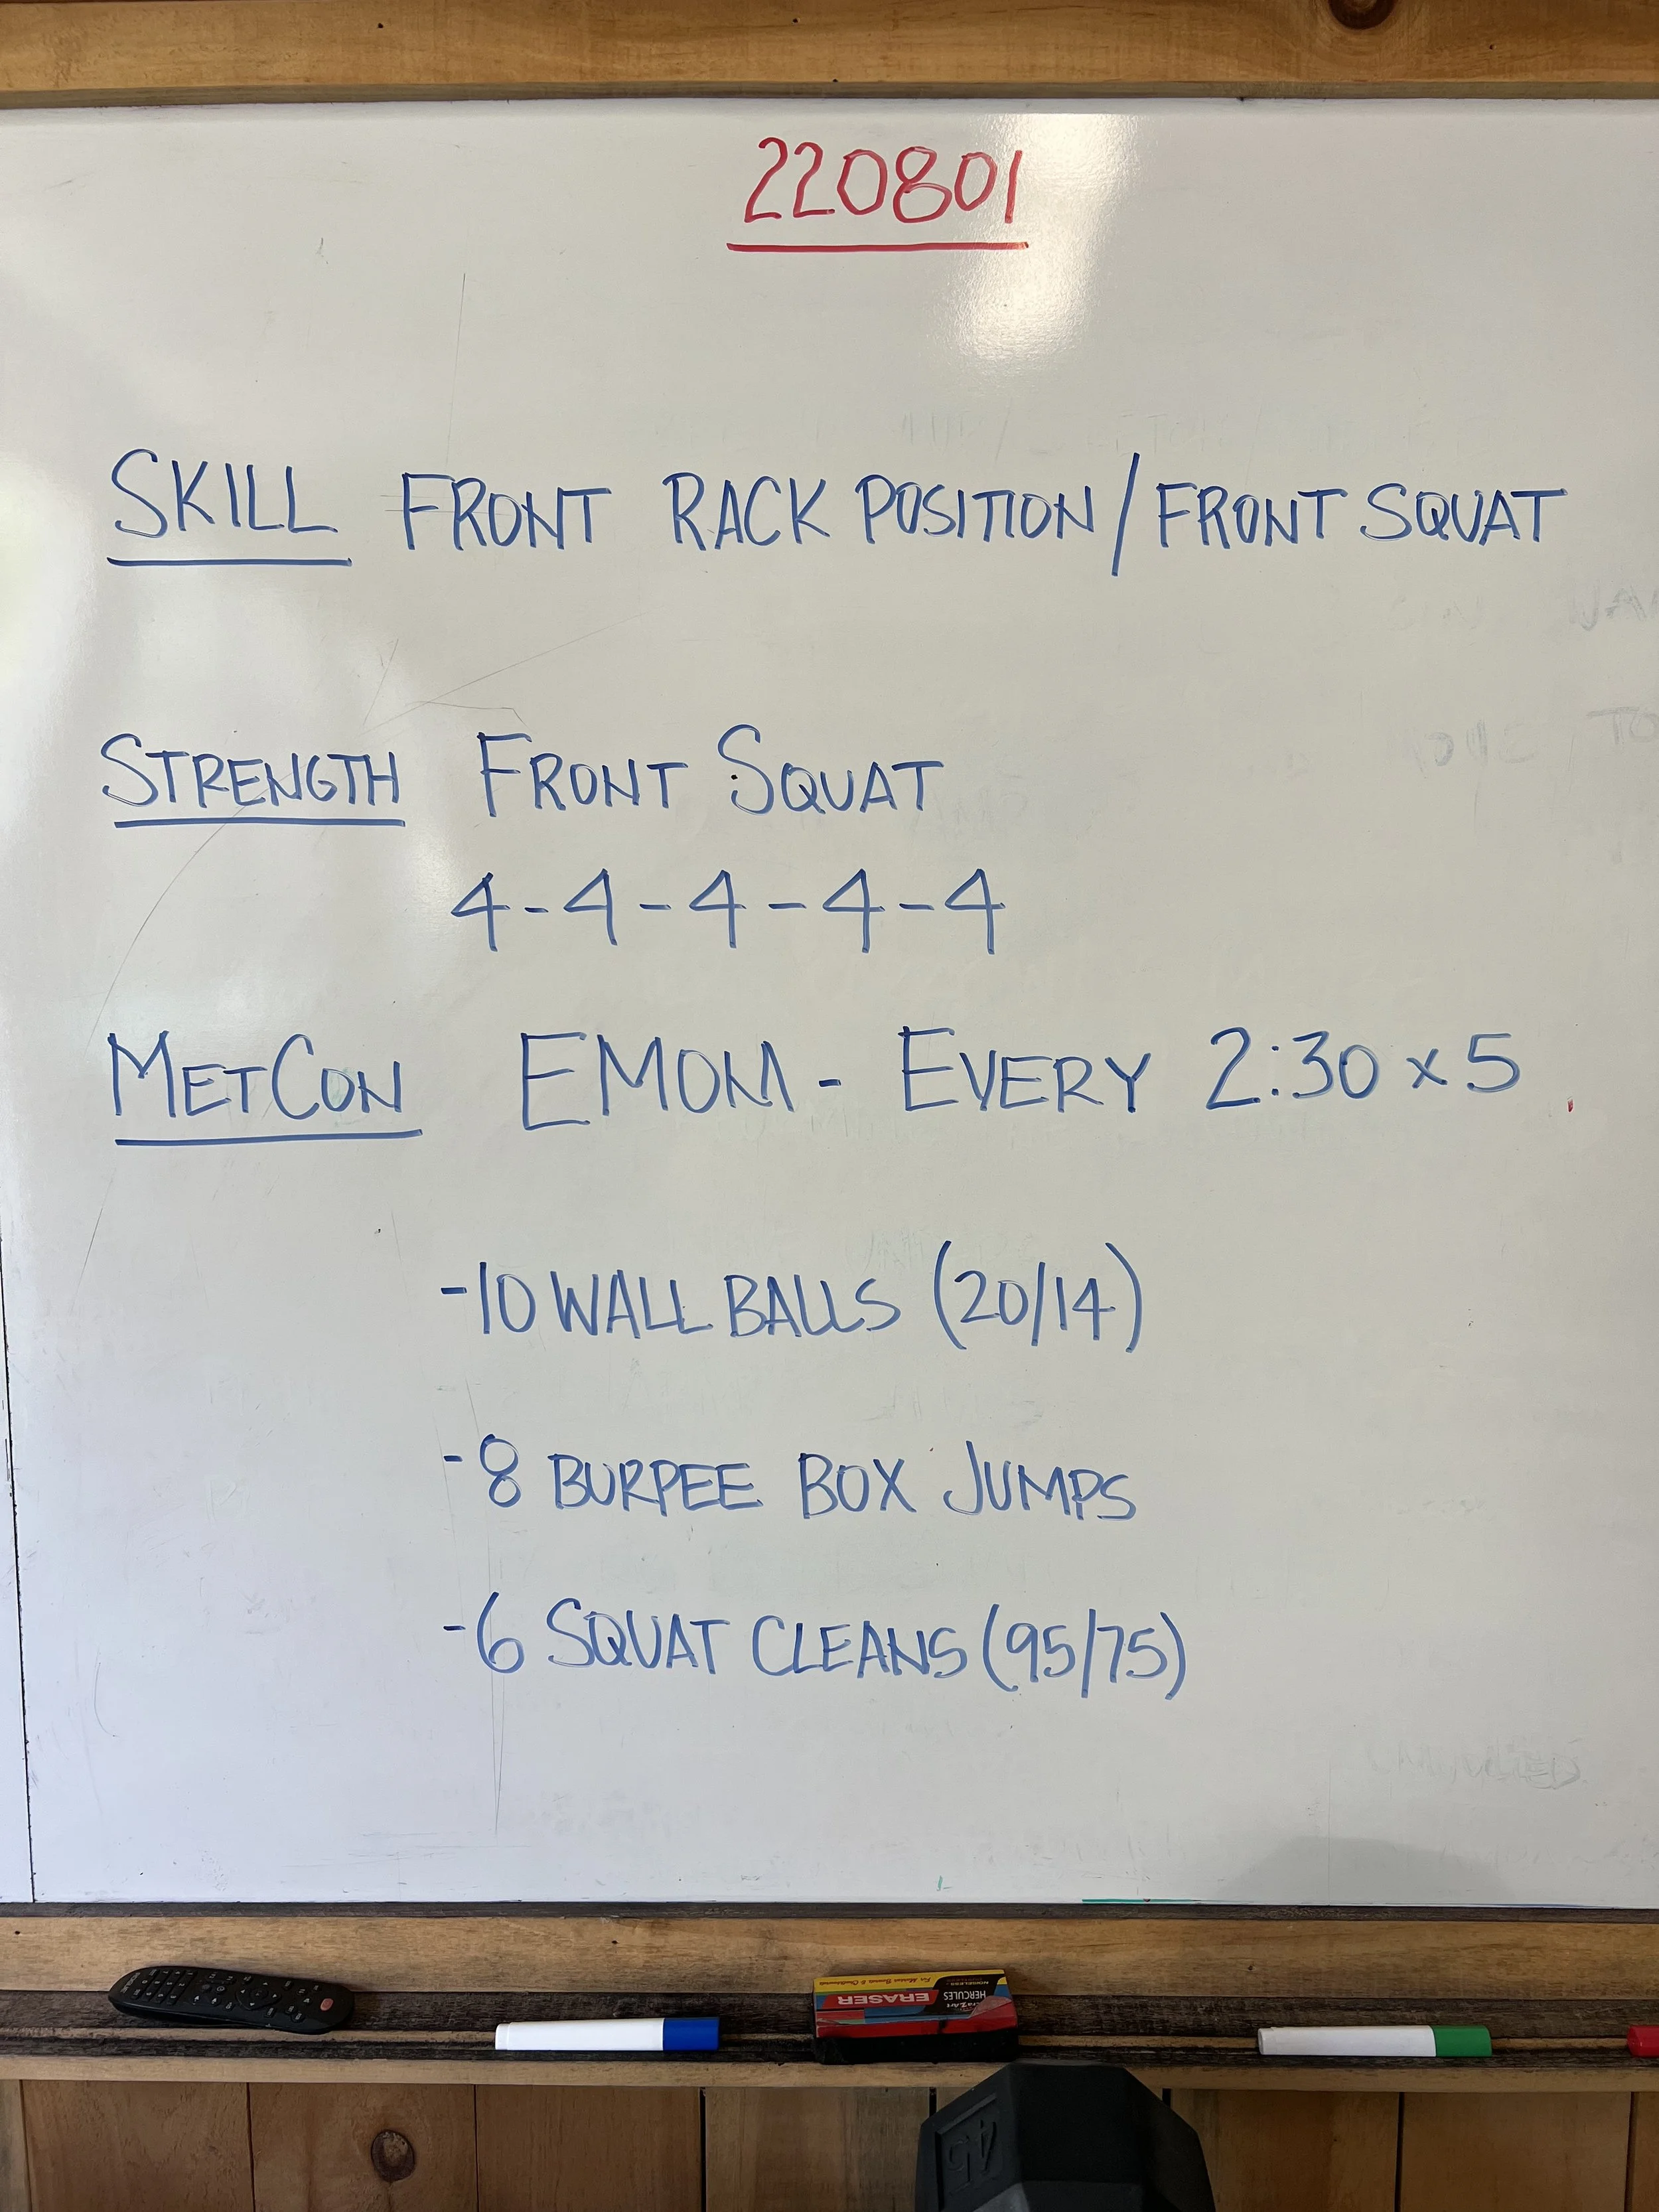 220801
SKILL FRONT RACK POSITION/FRONT SQUAT
STRENGTH FRONT SQUAT
4-4-4-4-4
METCON EMOM - EVERY 2:30 x 5
-10 WALL BALLS (20/14)
-8 BURPEE BOX JUMPS
-6 SQUAT CLEANS (95/75)
HERCULES
NOISELESS
ERASER
45